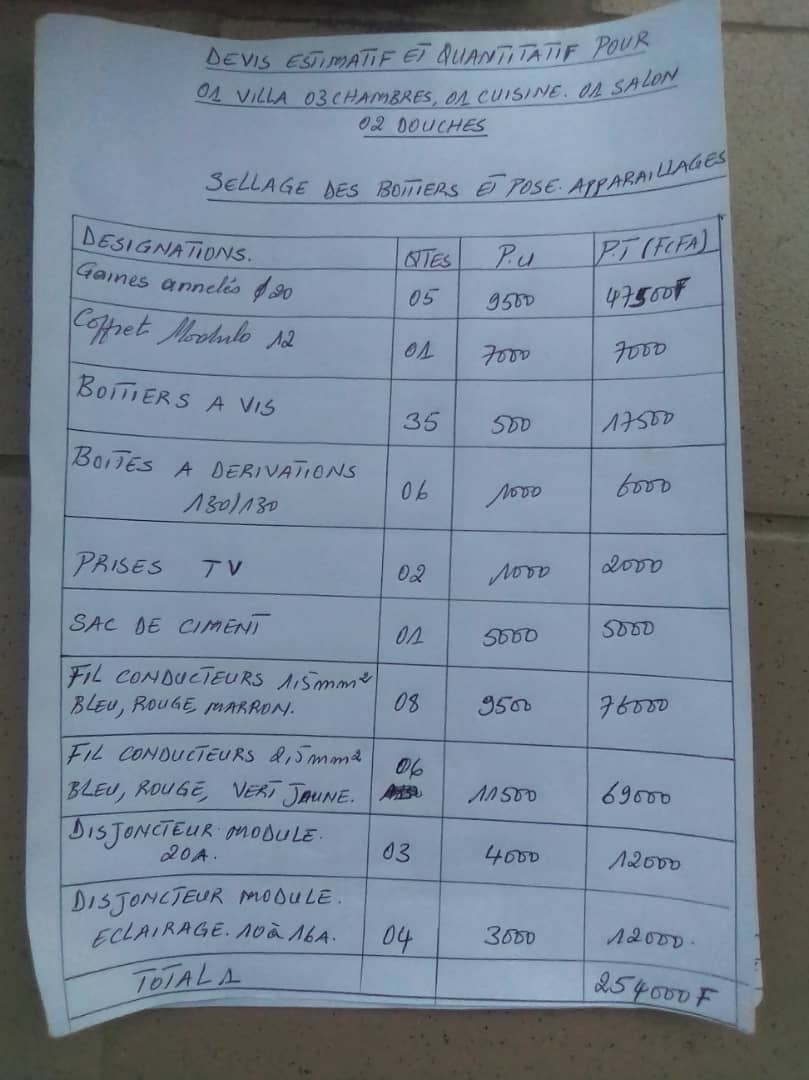 DEVIS ESTIMATIF ET QUANTITATIF POUR
01 VILLA 03 CHAMBRES, 01 CUISINE. 01 SALON
02 DOUCHES
SELLAGE DES BOITIERS ET POSE APPARAILLAGES
DESIGNATIONS. QTES P.U P.T (FCFA)
Gaines annelés ø20 05 9500 47500F
Coffret Modulo 12 01 7000 7000
BOITIERS A VIS 35 500 17500
BOITES A DERIVATIONS
130/130 06 1000 6000
PRISES TV 02 1000 2000
SAC DE CIMENT 01 5000 5000
FIL CONDUCTEURS 1,5mm²
BLEU, ROUGE, MARRON. 08 9500 76000
FIL CONDUCTEURS 2,5mm²
BLEU, ROUGE, VERT JAUNE. 06 11500 69000
DISJONCTEUR MODULE.
20A. 03 4000 12000
DISJONCTEUR MODULE.
ECLAIRAGE. 10 à 16A. 04 3000 12000.
TOTAL 1 254000F